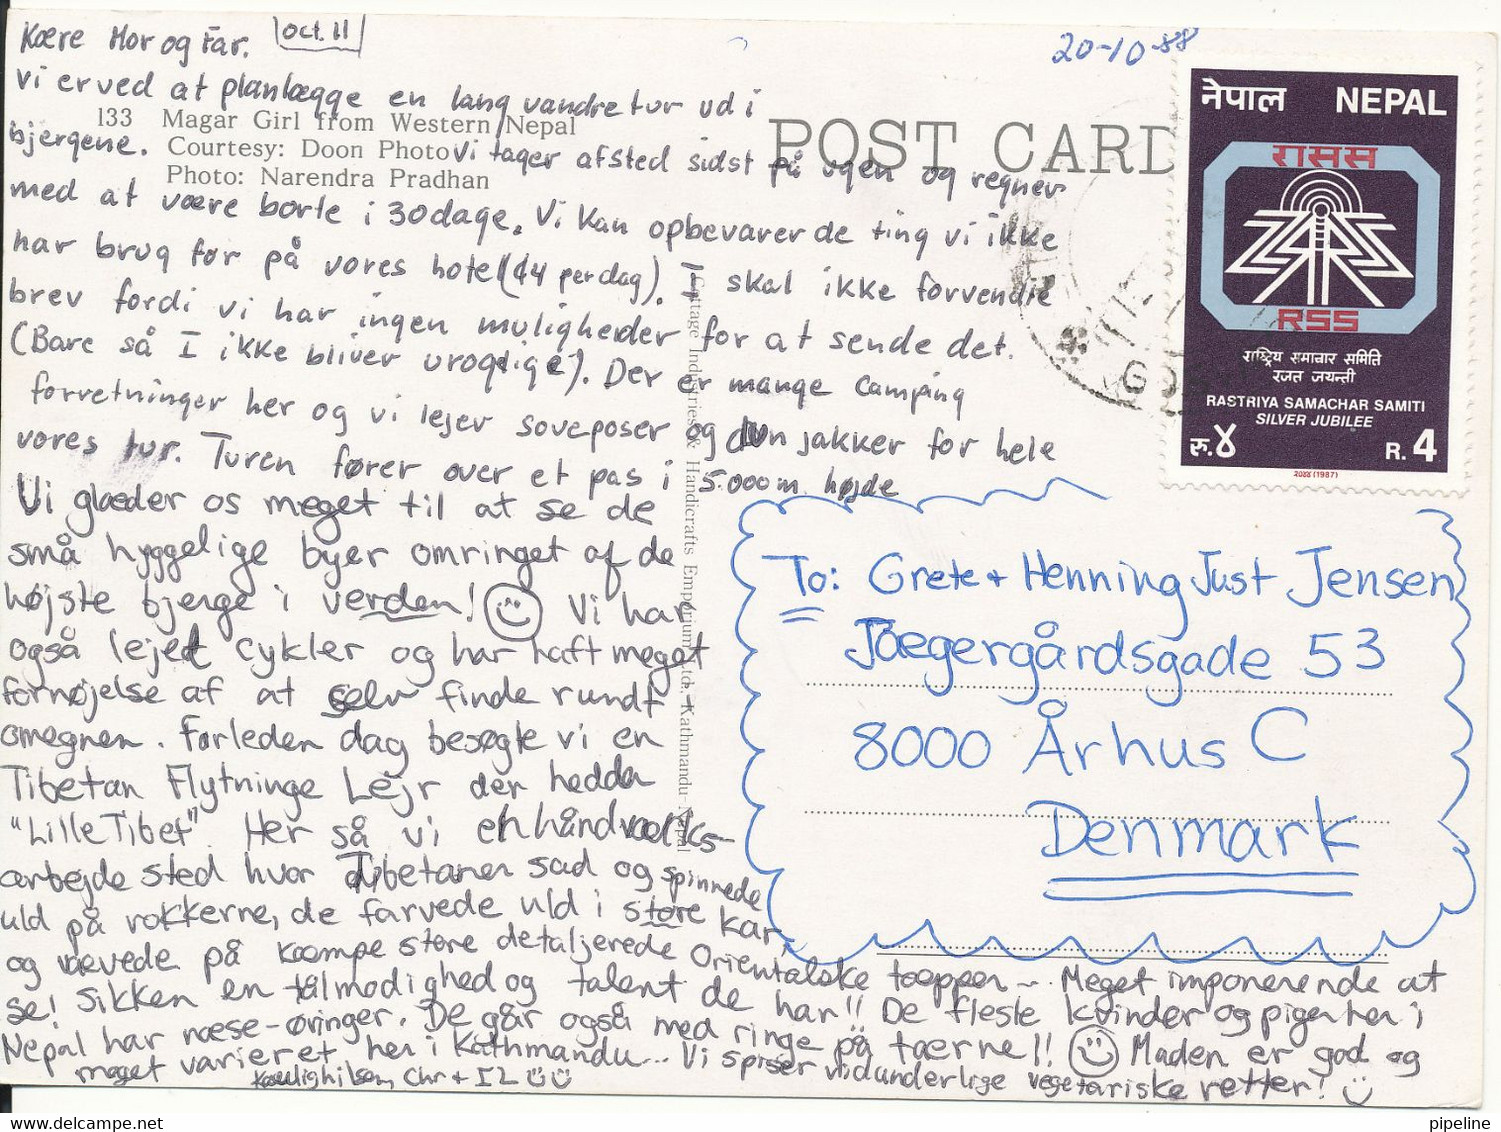 Kære Mor og Far. Oct. 11
Vi er ved at planlægge en lang vandretur ud i
bjergene. Vi tager afsted sidst på ugen og regner
med at være borte i 30 dage. Vi kan opbevarer de ting vi ikke
har brug for på vores hotel (¢4 per dag). I skal ikke forvendte
brev fordi vi har ingen muligheder for at sende det.
(Bare så I ikke bliver urolige). Der er mange camping
forretninger her og vi lejer soveposer og dun jakker for hele
vores tur. Turen fører over et pas i 5.000 m højde
Vi glæder os meget til at se de
små hyggelige byer omringet af de
højste bjerge i verden! Vi har
også lejet cykler og har haft meget
fornøjelse af at selv finde rundt
omegnen. Forleden dag besøgte vi en
Tibetan Flytninge Lejr der hedder
"Lille Tibet". Her så vi en håndværks-
arbejde sted hvor Tibetaner sad og spinnede
uld på rokkerne, de farvede uld i store kar,
og vævede på kæmpe store detaljerede Orientalske tæpper - Meget imponerende at
se! Sikken en tålmodighed og talent de har!! De fleste kvinder og piger her i
Nepal har næse-øringer. De går også med ringe på tæerne!! Maden er god og
meget varieret her i Kathmandu.. Vi spiser vidunderlige vegetariske retter!
Kærlig hilsen, Chr + IL
133 Magar Girl from Western Nepal
Courtesy: Doon Photo
Photo: Narendra Pradhan
POST CARD
Cottage Industries & Handicrafts Emporium Ltd. Kathmandu-Nepal
20-10-88
नेपाल NEPAL
रासस
RSS
राष्ट्रिय समाचार समिति
रजत जयन्ती
RASTRIYA SAMACHAR SAMITI
SILVER JUBILEE
रु. ४ R. 4
२०४४ (1987)
To: Grete + Henning Just Jensen
Jægergårdsgade 53
8000 Århus C
Denmark
pipeline